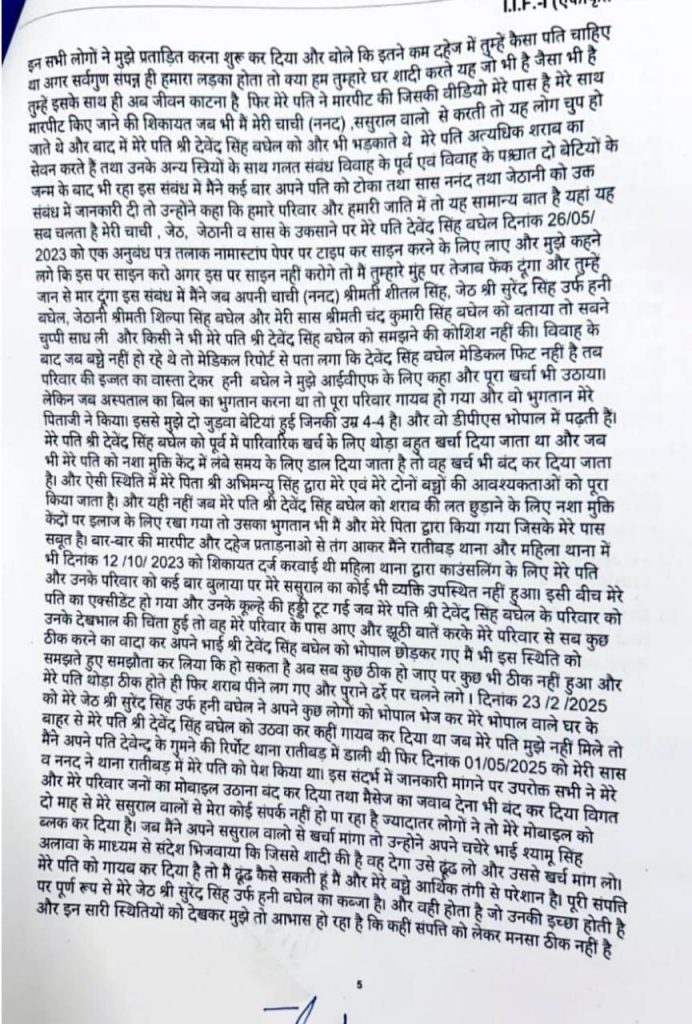 I.I.F.-I (एकीकृत
इन सभी लोगों ने मुझे प्रताड़ित करना शुरू कर दिया और बोले कि इतने कम दहेज में तुम्हें कैसा पति चाहिए
था अगर सर्वगुण संपन्न ही हमारा लड़का होता तो क्या हम तुम्हारे घर शादी करते यह जो भी है जैसा भी है
तुम्हे इसके साथ ही अब जीवन काटना है फिर मेरे पति ने मारपीट की जिसकी वीडियो मेरे पास है मेरे साथ
मारपीट किए जाने की शिकायत जब भी मैं मेरी चाची (ननद) ,ससुराल वालो से करती तो यह लोग चुप हो
जाते थे और बाद में मेरे पति श्री देवेंद्र सिंह बघेल को और भी भड़काते थे मेरे पति अत्यधिक शराब का
सेवन करते हैं तथा उनके अन्य स्त्रियों के साथ गलत संबंध विवाह के पूर्व एवं विवाह के पश्चात दो बेटियों के
जन्म के बाद भी रहा इस संबंध में मैने कई बार अपने पति को टोका तथा सास ननंद तथा जेठानी को उक
संबंध में जानकारी दी तो उन्होंने कहा कि हमारे परिवार और हमारी जाति में तो यह सामान्य बात है यहां यह
सब चलता है मेरी चाची , जेठ, जेठानी व सास के उकसाने पर मेरे पति देवेंद्र सिंह बघेल दिनांक 26/05/
2023 को एक अनुबंध पत्र तलाक नामास्टांप पेपर पर टाइप कर साइन करने के लिए लाए और मुझे कहने
लगे कि इस पर साइन करो अगर इस पर साइन नहीं करोगे तो मैं तुम्हारे मुंह पर तेजाब फेंक दूंगा और तुम्हें
जान से मार दूंगा इस संबंध में मैंने जब अपनी चाची (ननद) श्रीमती शीतल सिंह, जेठ श्री सुरेंद्र सिंह उर्फ हनी
बघेल, जेठानी श्रीमती शिल्पा सिंह बघेल और मेरी सास श्रीमती चंद्र कुमारी सिंह बघेल को बताया तो सबने
चुप्पी साध ली और किसी ने भी मेरे पति श्री देवेंद्र सिंह बघेल को समझने की कोशिश नहीं की। विवाह के
बाद जब बच्चे नहीं हो रहे थे तो मेडिकल रिपोर्ट से पता लगा कि देवेंद्र सिंह बघेल मेडिकल फिट नहीं है तब
परिवार की इज्जत का वास्ता देकर हनी बघेल ने मुझे आईवीएफ के लिए कहा और पूरा खर्चा भी उठाया।
लेकिन जब अस्पताल का बिल का भुगतान करना था तो पूरा परिवार गायब हो गया और वो भुगतान मेरे
पिताजी ने किया। इससे मुझे दो जुड़वा बेटियां हुई जिनकी उम्र 4-4 है। और वो डीपीएस भोपाल में पढ़ती हैं।
मेरे पति श्री देवेंद्र सिंह बघेल को पूर्व में पारिवारिक खर्च के लिए थोड़ा बहुत खर्चा दिया जाता था और जब
भी मेरे पति को नशा मुक्ति केंद्र में लंबे समय के लिए डाल दिया जाता है तो वह खर्च भी बंद कर दिया जाता
है। और ऐसी स्थिति में मेरे पिता श्री अभिमन्यु सिंह द्वारा मेरे एवं मेरे दोनों बच्चों की आवश्यकताओं को पूरा
किया जाता है। और यही नहीं जब मेरे पति श्री देवेंद्र सिंह बघेल को शराब की लत छुड़ाने के लिए नशा मुक्ति
केंद्रों पर इलाज के लिए रखा गया तो उसका भुगतान भी मैं और मेरे पिता द्वारा किया गया जिसके मेरे पास
सबूत है। बार-बार की मारपीट और दहेज प्रताड़नाओ से तंग आकर मैंने रातीबड़ थाना और महिला थाना में
भी दिनांक 12 /10/ 2023 को शिकायत दर्ज करवाई थी महिला थाना द्वारा काउंसलिंग के लिए मेरे पति
और उनके परिवार को कई बार बुलाया पर मेरे ससुराल का कोई भी व्यक्ति उपस्थित नहीं हुआ। इसी बीच मेरे
पति का एक्सीडेंट हो गया और उनके कूल्हे की हड्डी टूट गई जब मेरे पति श्री देवेंद्र सिंह बघेल के परिवार को
उनके देखभाल की चिंता हुई तो वह मेरे परिवार के पास आए और झूठी बातें करके मेरे परिवार से सब कुछ
ठीक करने का वादा कर अपने भाई श्री देवेंद्र सिंह बघेल को भोपाल छोड़कर गए मैं भी इस स्थिति को
समझते हुए समझौता कर लिया कि हो सकता है अब सब कुछ ठीक हो जाए पर कुछ भी ठीक नहीं हुआ और
मेरे पति थोड़ा ठीक होते ही फिर शराब पीने लग गए और पुराने ढर्रे पर चलने लगे । दिनांक 23 /2 /2025
को मेरे जेठ श्री सुरेंद्र सिंह उर्फ हनी बघेल ने अपने कुछ लोगों को भोपाल भेज कर मेरे भोपाल वाले घर के
बाहर से मेरे पति श्री देवेंद्र सिंह बघेल को उठवा कर कहीं गायब कर दिया था जब मेरे पति मुझे नहीं मिले तो
मैंने अपने पति देवेन्द्र के गुमने की रिर्पोट थाना रातीबड़ में डाली थी फिर दिनांक 01/05/2025 को मेरी सास
व ननद ने थाना रातीबड़ में मेरे पति को पेश किया था। इस संदर्भ में जानकारी मांगने पर उपरोक्त सभी ने मेरे
और मेरे परिवार जनों का मोबाइल उठाना बंद कर दिया तथा मैसेज का जवाब देना भी बंद कर दिया विगत
दो माह से मेरे ससुराल वालों से मेरा कोई संपर्क नहीं हो पा रहा है ज्यादातर लोगों ने तो मेरे मोबाइल को
ब्लक कर दिया है। जब मैंने अपने ससुराल वालो से खर्चा मांगा तो उन्होंने अपने चचेरे भाई श्यामू सिंह
अलावा के माध्यम से संदेश भिजवाया कि जिससे शादी की है वह देगा उसे ढूंढ लो और उससे खर्च मांग लो।
मेरे पति को गायब कर दिया है तो मैं ढूंढ कैसे सकती हूं मैं और मेरे बच्चे आर्थिक तंगी से परेशान है। पूरी संपत्ति
पर पूर्ण रूप से मेरे जेठ श्री सुरेंद्र सिंह उर्फ हनी बघेल का कब्जा है। और वही होता है जो उनकी इच्छा होती है
और इन सारी स्थितियों को देखकर मुझे तो आभास हो रहा है कि कही संपति को लेकर मनसा ठीक नहीं है
5